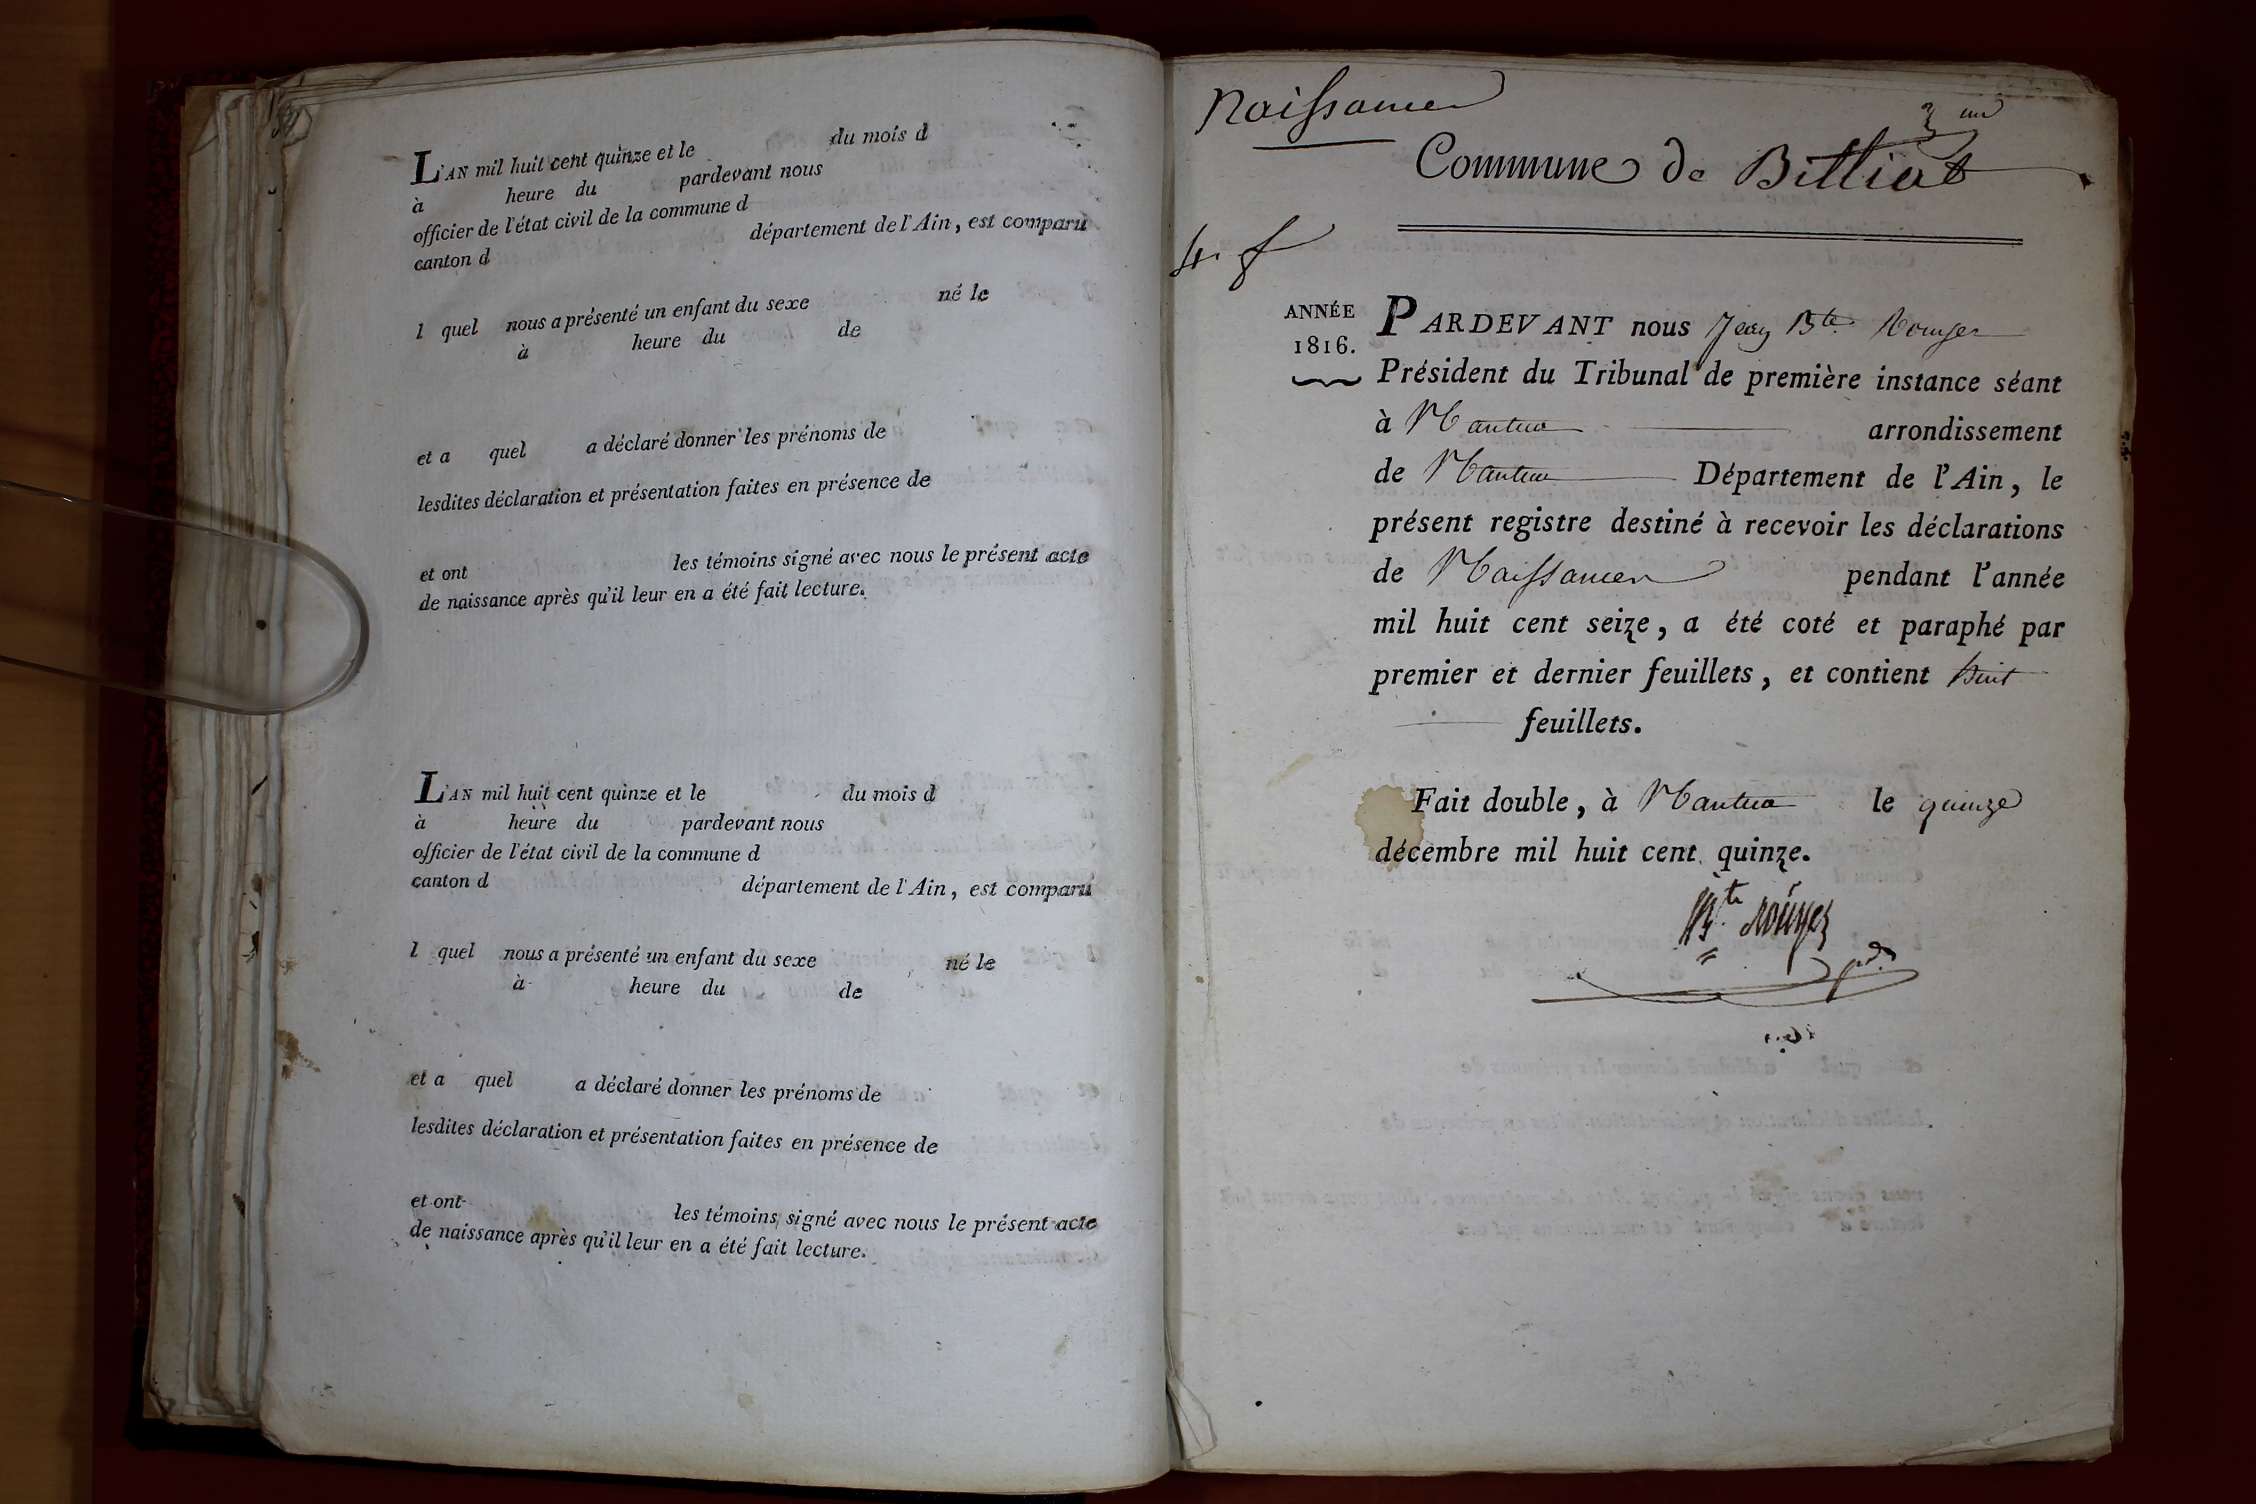 L'AN mil huit cent quinze et le du mois d
à heure du pardevant nous
officier de l'état civil de la commune d
canton d département de l'Ain, est comparu
l quel nous a présenté un enfant du sexe né le
à heure du de
et a quel a déclaré donner les prénoms de
lesdites déclaration et présentation faites en présence de
et ont les témoins signé avec nous le présent acte
de naissance après qu'il leur en a été fait lecture.
L'AN mil huit cent quinze et le du mois d
à heure du pardevant nous
officier de l'état civil de la commune d
canton d département de l'Ain, est comparu
l quel nous a présenté un enfant du sexe né le
à heure du de
et a quel a déclaré donner les prénoms de
lesdites déclaration et présentation faites en présence de
et ont les témoins signé avec nous le présent acte
de naissance après qu'il leur en a été fait lecture.
Naissances
Commune de Billiat
4. f
ANNÉE
1816.
PARDEVANT nous Jean Bte Rouyer
Président du Tribunal de première instance séant
à Nantua arrondissement
de Nantua Département de l'Ain, le
présent registre destiné à recevoir les déclarations
de Naissances pendant l'année
mil huit cent seize, a été coté et paraphé par
premier et dernier feuillets, et contient huit
feuillets.
Fait double, à Nantua le quinze
décembre mil huit cent quinze.
Bte Rouyer
pdt